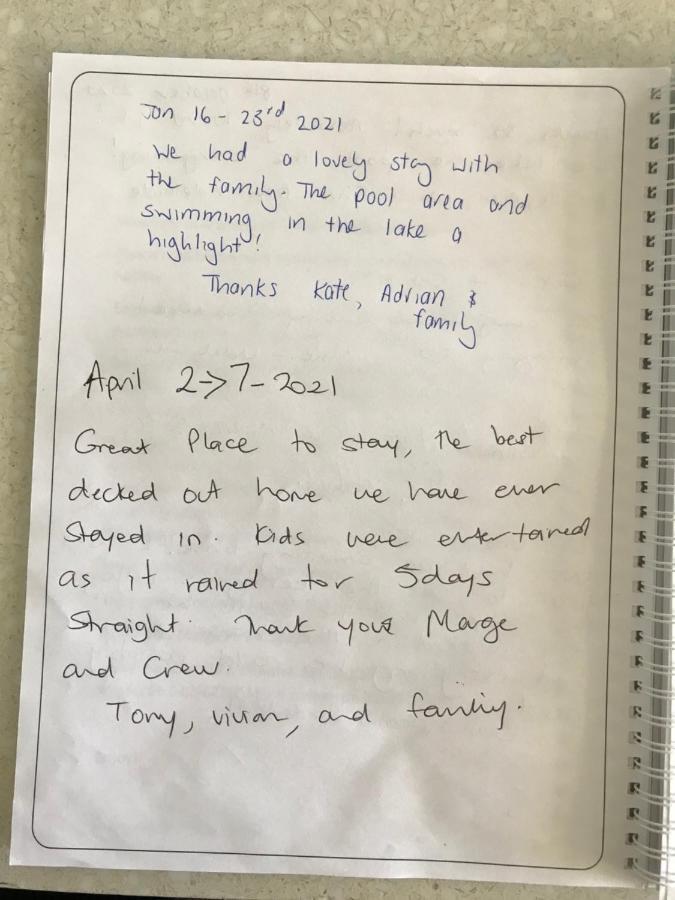 Jan 16 - 23rd 2021
We had a lovely stay with
the family. The pool area and
swimming in the lake a
highlight!
Thanks Kate, Adrian &
family
April 2->7-2021
Great Place to stay, the best
decked out home we have ever
Stayed in. Kids were entertained
as it rained for 5days
Straight. Thank you Marge
and Crew.
Tony, vivian, and family.